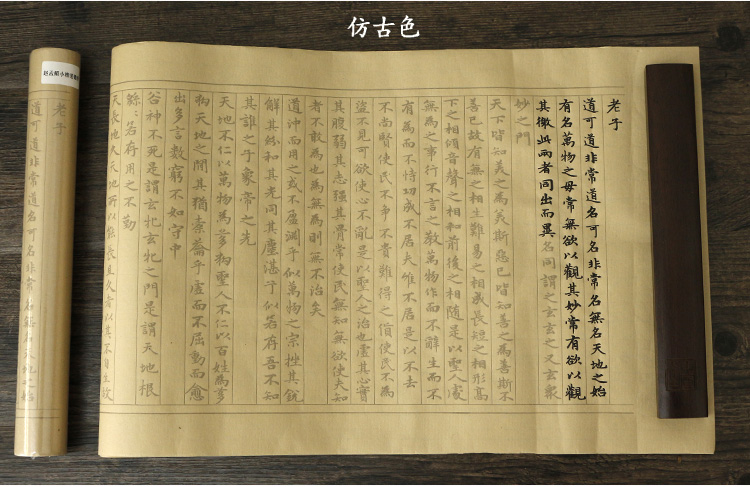 仿古色
老子
道可道非常道名可名非常名無名天地之始
有名萬物之母常無欲以觀其妙常有欲以觀
其徼此兩者同出而異名同謂之玄玄之又玄衆
妙之門
天下皆知美之為美斯惡已皆知善之為善斯不
善已故有無之相生難易之相成長短之相形高
下之相傾音聲之相和前後之相随是以聖人處
無為之事行不言之教萬物作而不辭生而不
有為而不恃功成不居夫惟不居是以不去
不尚賢使民不爭不貴難得之貨使民不為
盜不見可欲使心不亂是以聖人之治也虛其心實
其腹弱其志强其骨常使民無知無欲使夫知
者不敢為也為無為則無不治矣
道沖而用之或不盈淵乎似萬物之宗挫其銳
解其紛和其光同其塵湛乎似若存吾不知
其誰之子象帝之先
天地不仁以萬物為芻狗聖人不仁以百姓為芻
狗天地之間其猶橐籥乎虛而不屈動而愈
出多言數窮不如守中
谷神不死是謂玄牝玄牝之門是謂天地根
緜緜若存用之不勤
天長地久天地所以能長且久者以其不自生故
老子
道可道非常道名可名非常名無名天地之始